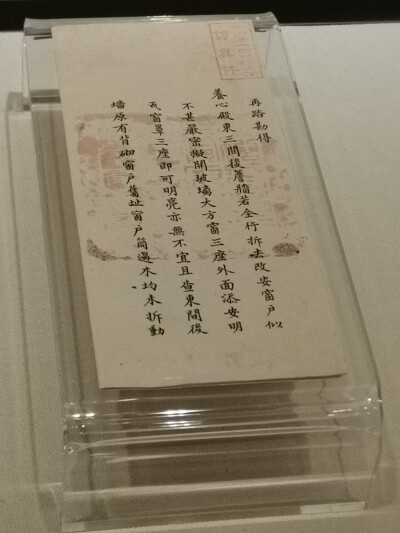 仿真件
再踏勘得
養心殿東三間後簷牆若全行拆去改安窗戶似
不甚嚴密擬開玻璃大方窗三座外面添安明
瓦窗罩三座即可明亮亦無不宜且查東間後
墻原有背砌窗戶舊址窗戶筒過木均未拆動